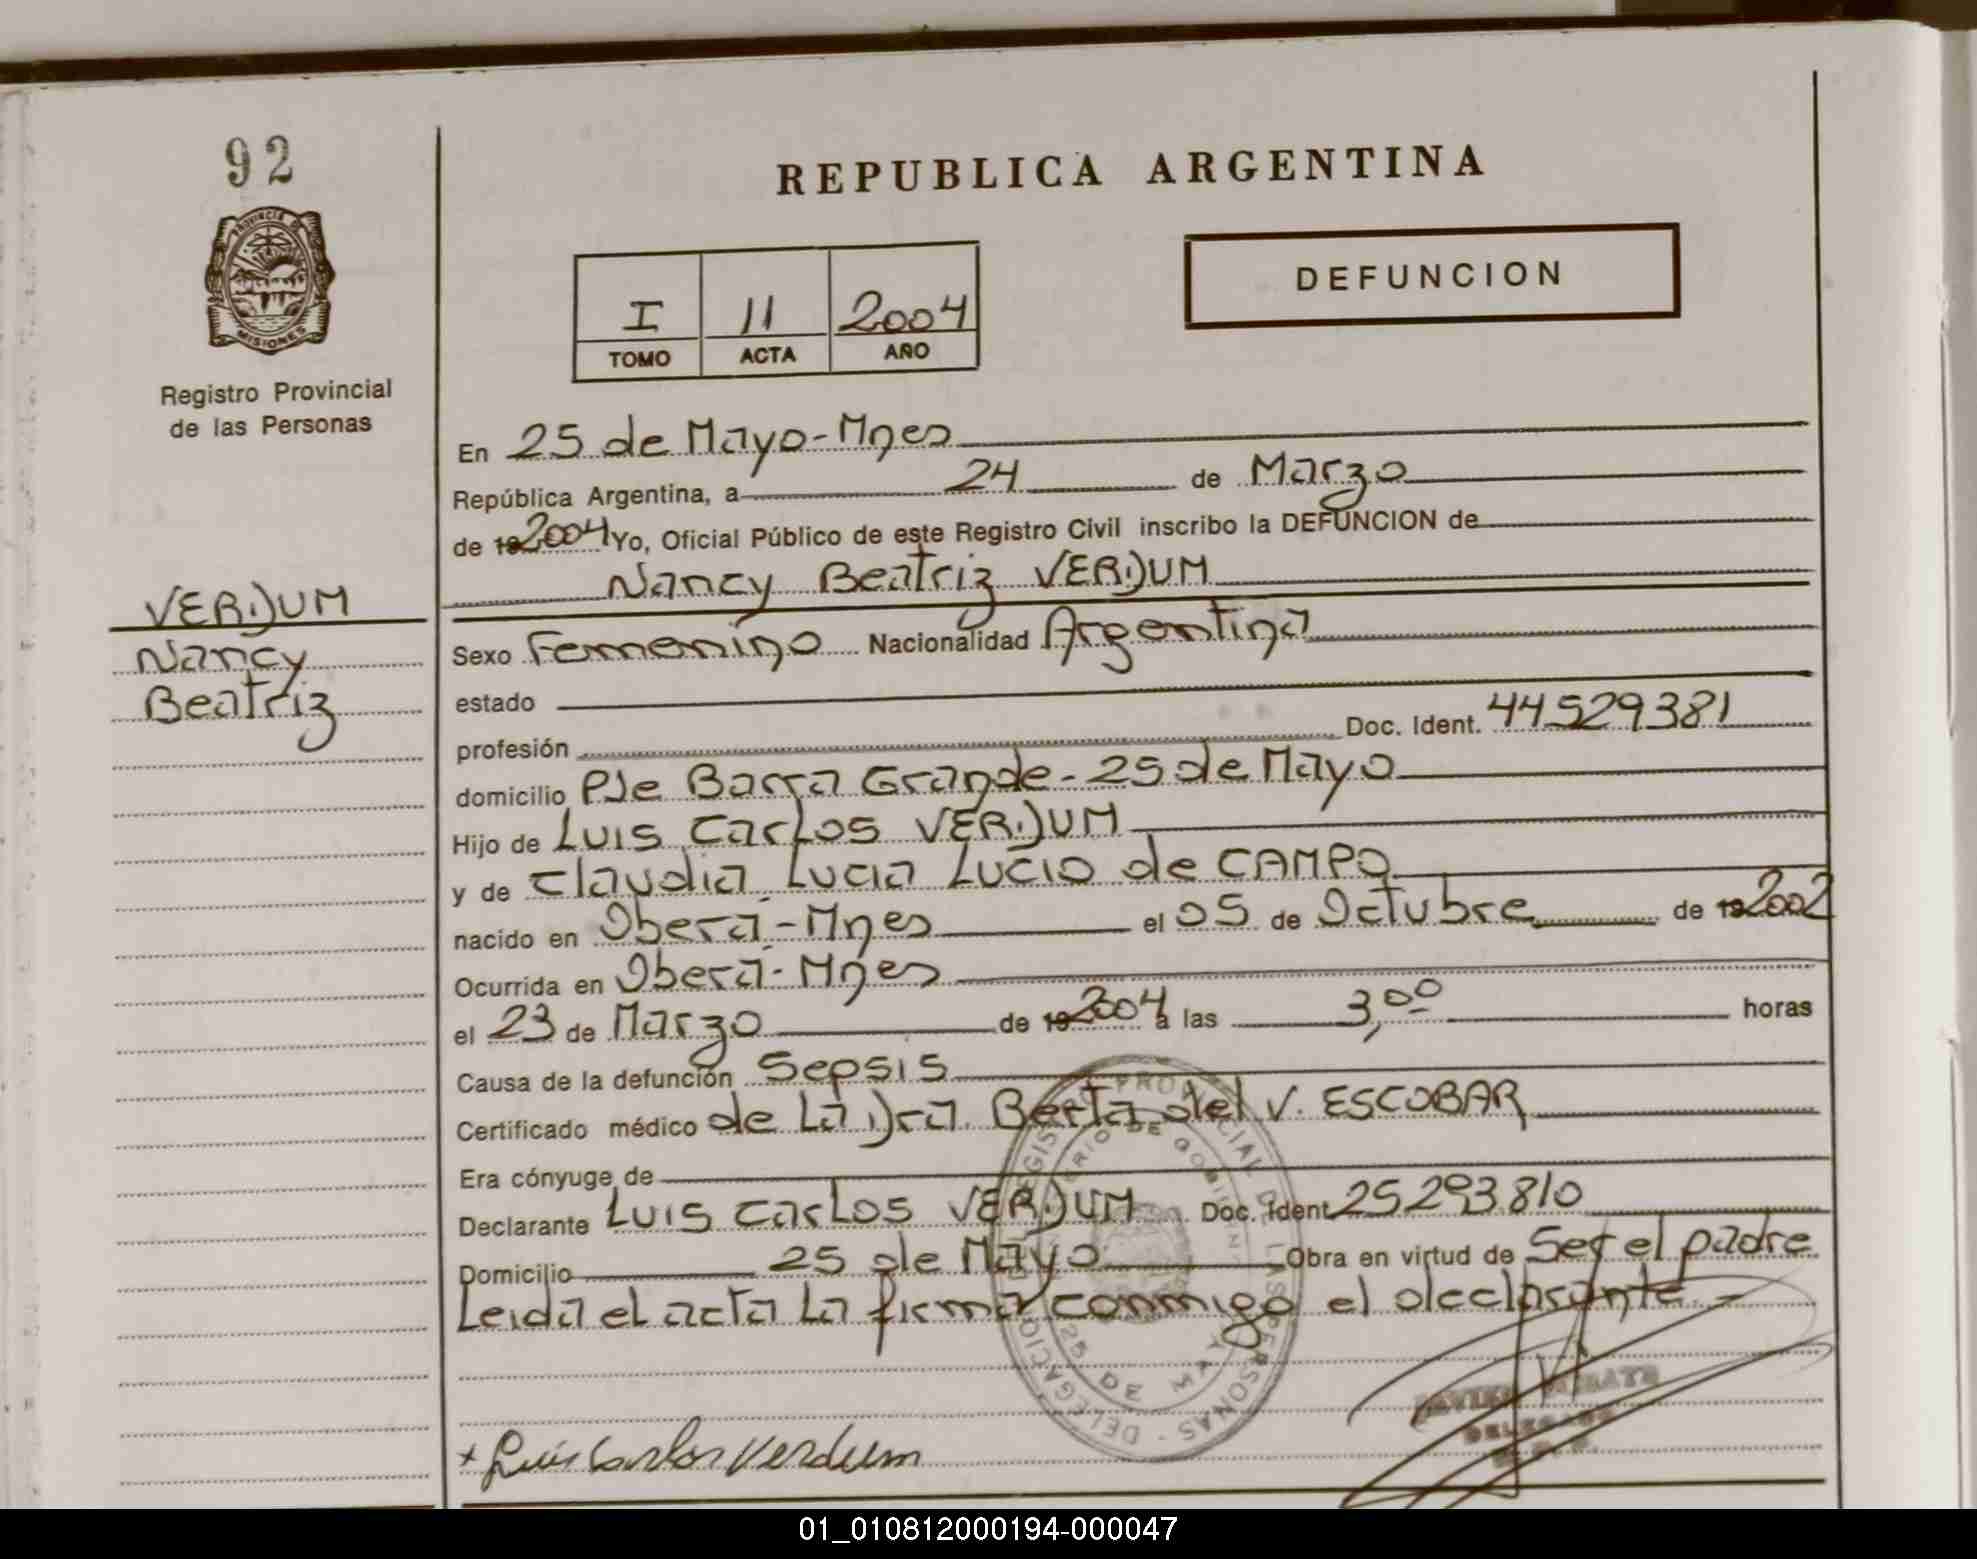 92
REPUBLICA ARGENTINA
PROVINCIA DE MISIONES
DEFUNCION
I 11 2004
TOMO ACTA AÑO
Registro Provincial
de las Personas
En 25 de Mayo-Mnes
República Argentina, a 24 de Marzo
de 19 2004 Yo, Oficial Público de este Registro Civil inscribo la DEFUNCION de
Nancy Beatriz VERDUM
VERDUM
Nancy
Beatriz
Sexo Femenino Nacionalidad Argentina
estado
profesión Doc. Ident. 44529381
domicilio Pje Barra Grande-25 de Mayo
Hijo de Luis Carlos VERDUM
y de Claudia Lucia Lucio de CAMPO
nacido en Oberá-Mnes el 05 de Octubre de 19 2002
Ocurrida en Oberá-Mnes
el 23 de Marzo de 19 2004 a las 3,00 horas
Causa de la defunción Sepsis
Certificado médico de La Dra. Berta del V. ESCOBAR
Era cónyuge de
Declarante Luis Carlos VERDUM Doc. Ident 25293.810
Domicilio 25 de Mayo Obra en virtud de Ser el padre
Leida el acta La firma conmigo el declarante.-
REGISTRO PROVINCIAL DE LAS PERSONAS - DELEGACION
MINISTERIO DE GOBIERNO
25 DE MAYO
DELEGADO
+ Luis Carlos Verdum
01_010812000194-000047